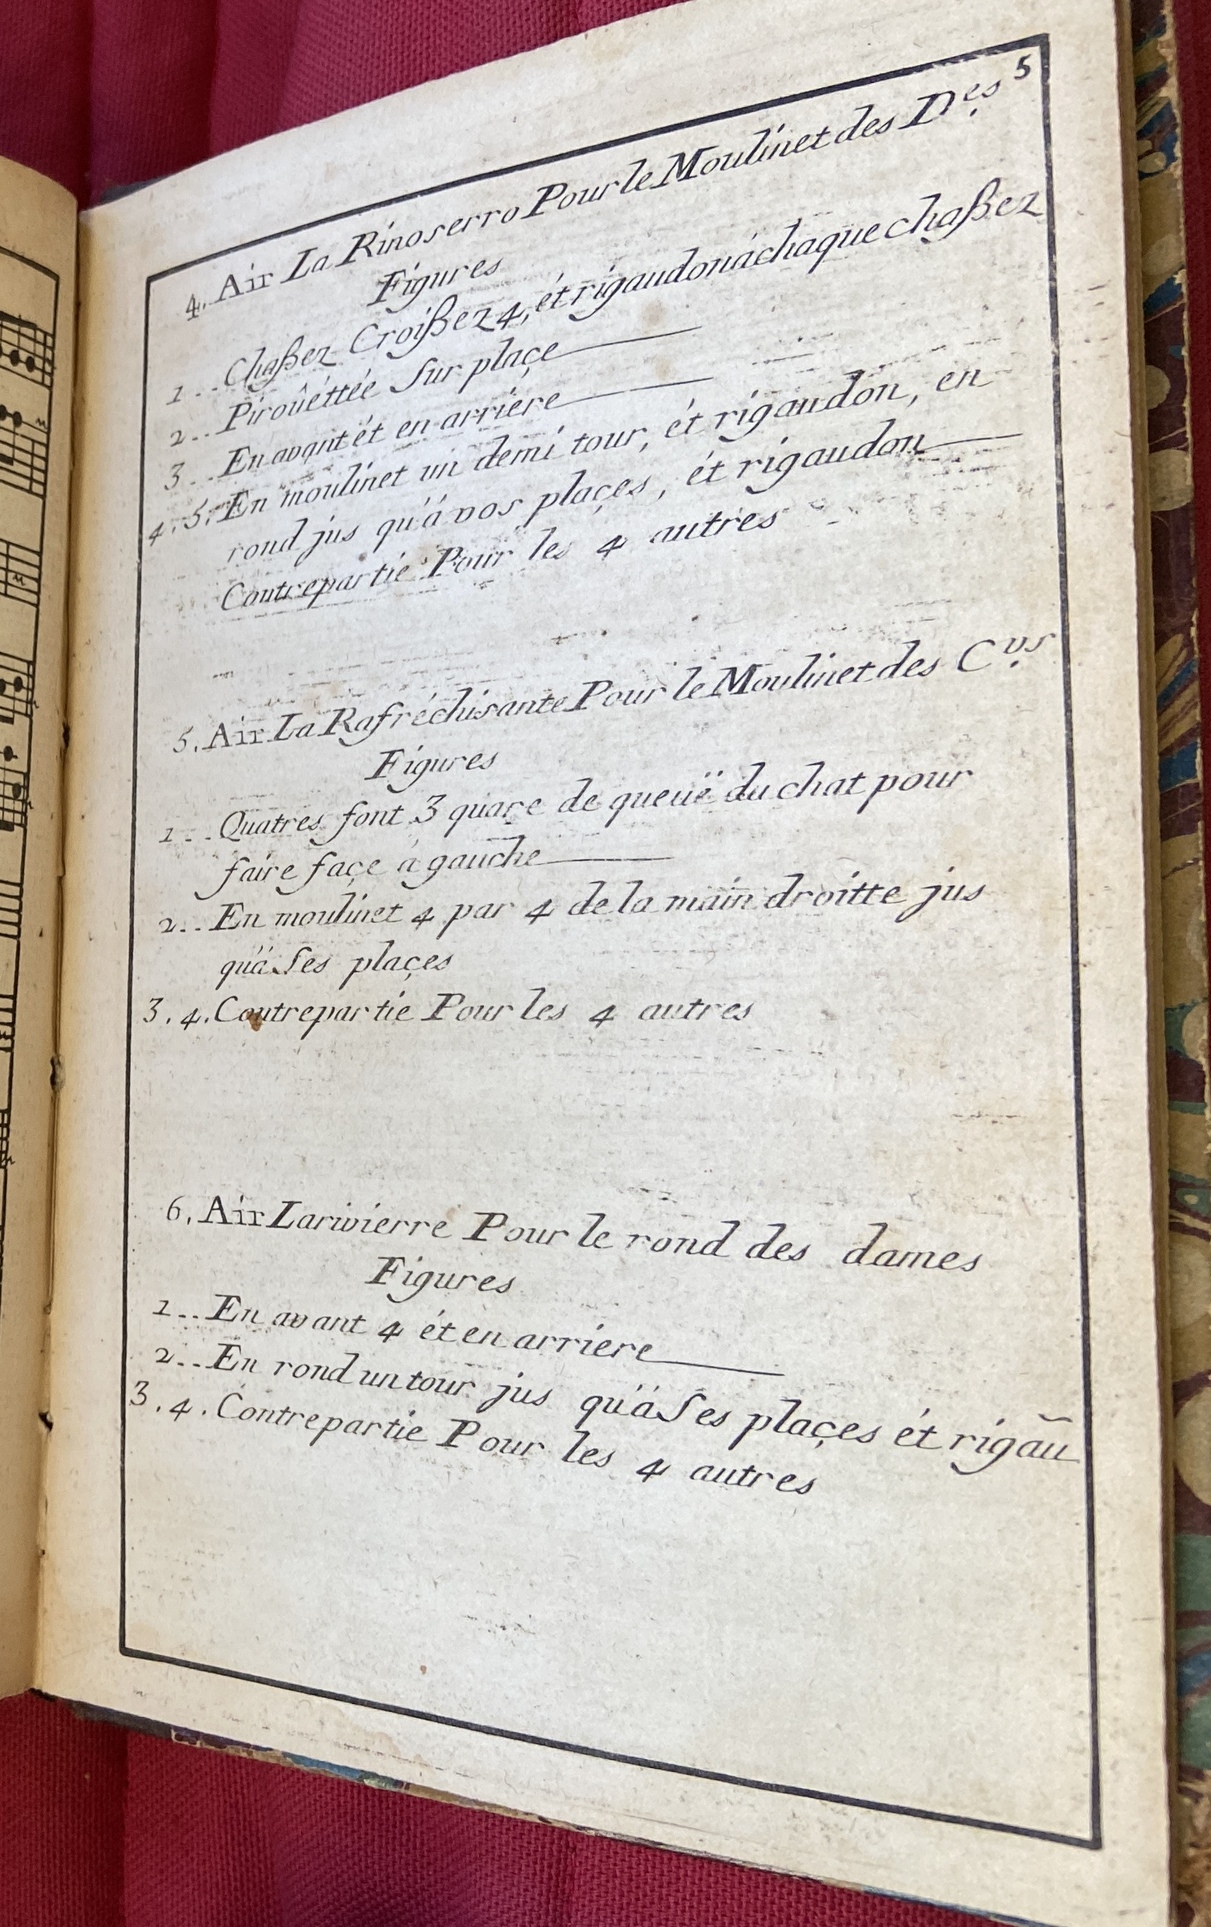 5
4. Air La Rinoserro Pour le Moulinet des D.es
Figures
1... Chaßez Croißez 4, ét rigaudon á chaque chaßez
2.. Piroüéttée Sur plaçe
3... En avant ét en arriére
4. 5. En moulinet un demi tour, ét rigaudon, en
rond jus qu'á vos plaçes, ét rigaudon
Contrepartie Pour les 4 autres
5. Air La Rafréchisante Pour le Moulinet des C.vs
Figures
1... Quatres font 3 quare de queuë du chat pour
faire façe à gauche
2... En moulinet 4 par 4 de la main droitte jus
qu'á Ses plaçes
3. 4. Contrepartie Pour les 4 autres
6. Air Larivierre Pour le rond des dames
Figures
1... En avant 4 ét en arriere
2... En rond un tour jus qu'á Ses plaçes ét rigãu
3. 4. Contrepartie Pour les 4 autres